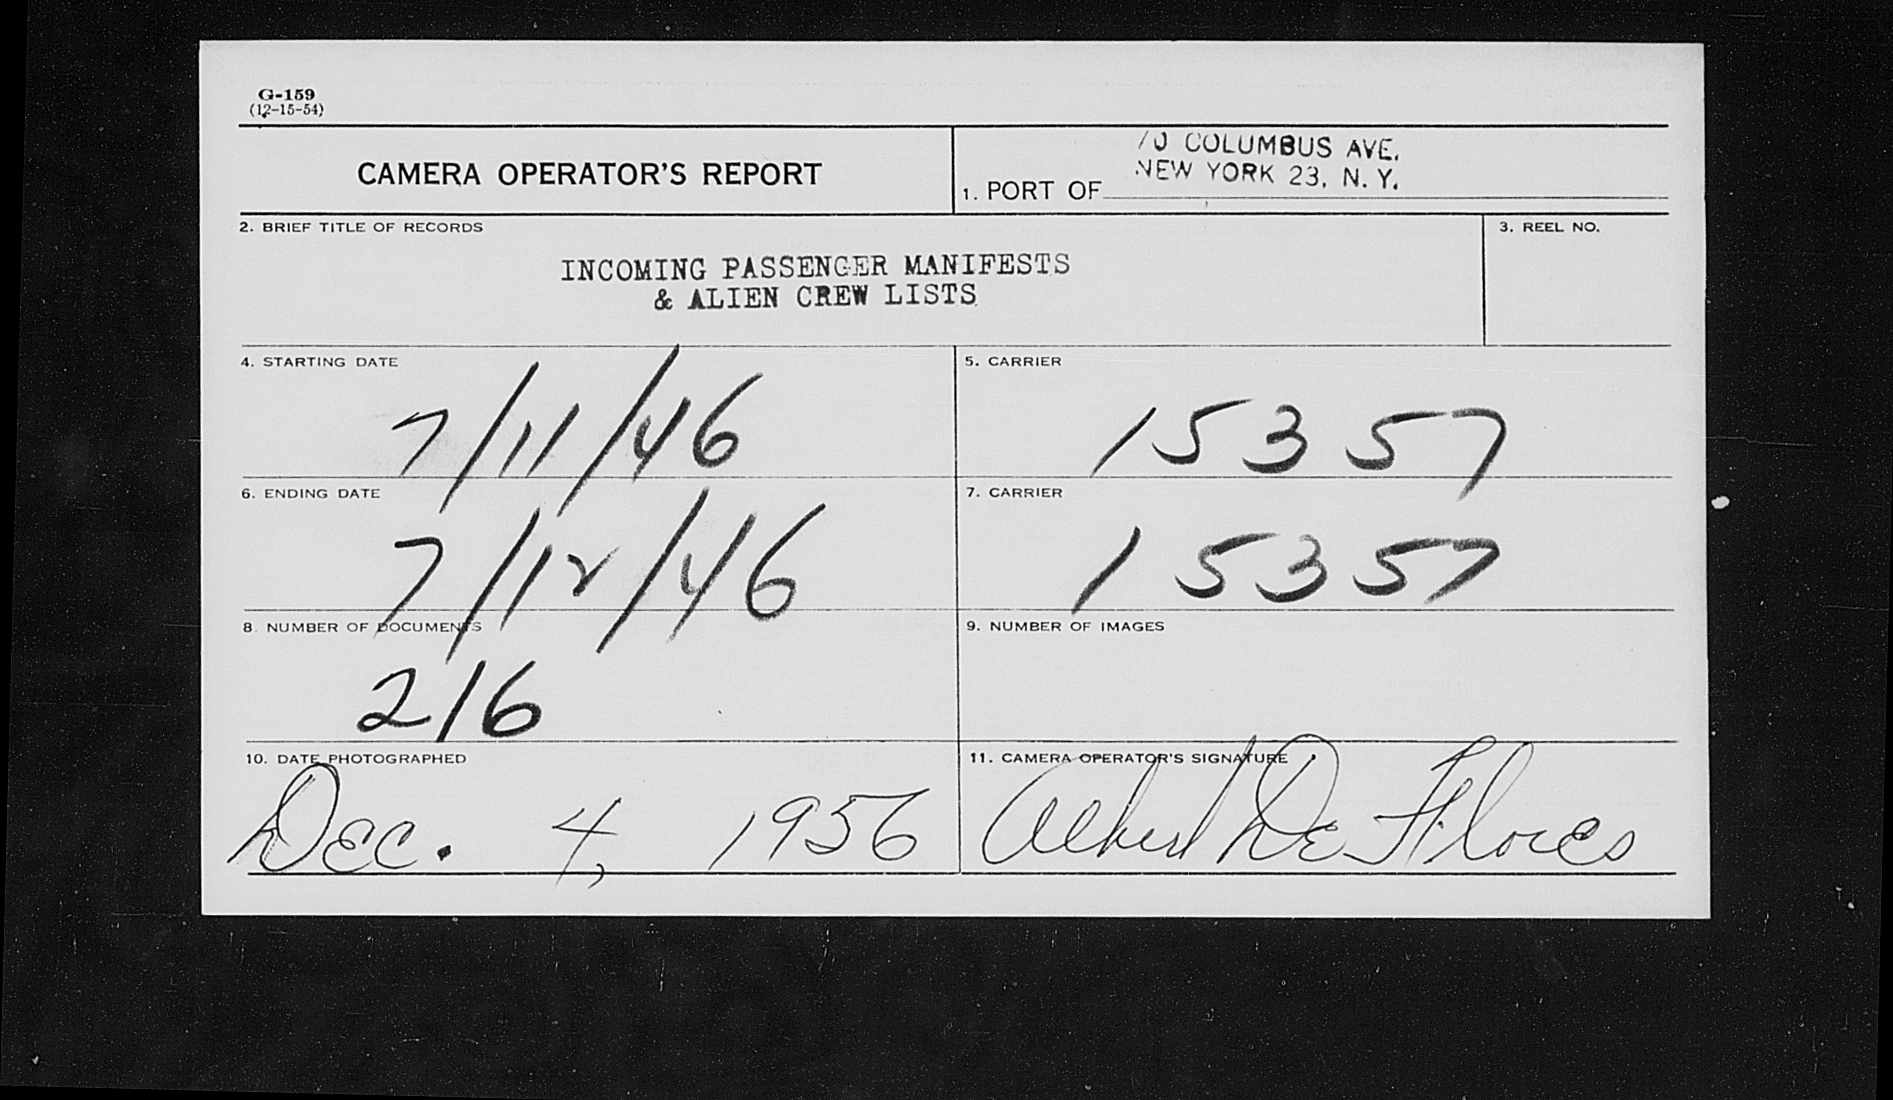 G-159
(12-15-54)
CAMERA OPERATOR'S REPORT
70 COLUMBUS AVE.
NEW YORK 23, N. Y.
1. PORT OF
2. BRIEF TITLE OF RECORDS
3. REEL NO.
INCOMING PASSENGER MANIFESTS
& ALIEN CREW LISTS
4. STARTING DATE
7/11/46
5. CARRIER
15357
6. ENDING DATE
7/12/46
7. CARRIER
15357
8. NUMBER OF DOCUMENTS
216
9. NUMBER OF IMAGES
10. DATE PHOTOGRAPHED
Dec. 4, 1956
11. CAMERA OPERATOR'S SIGNATURE
Albert De Flores